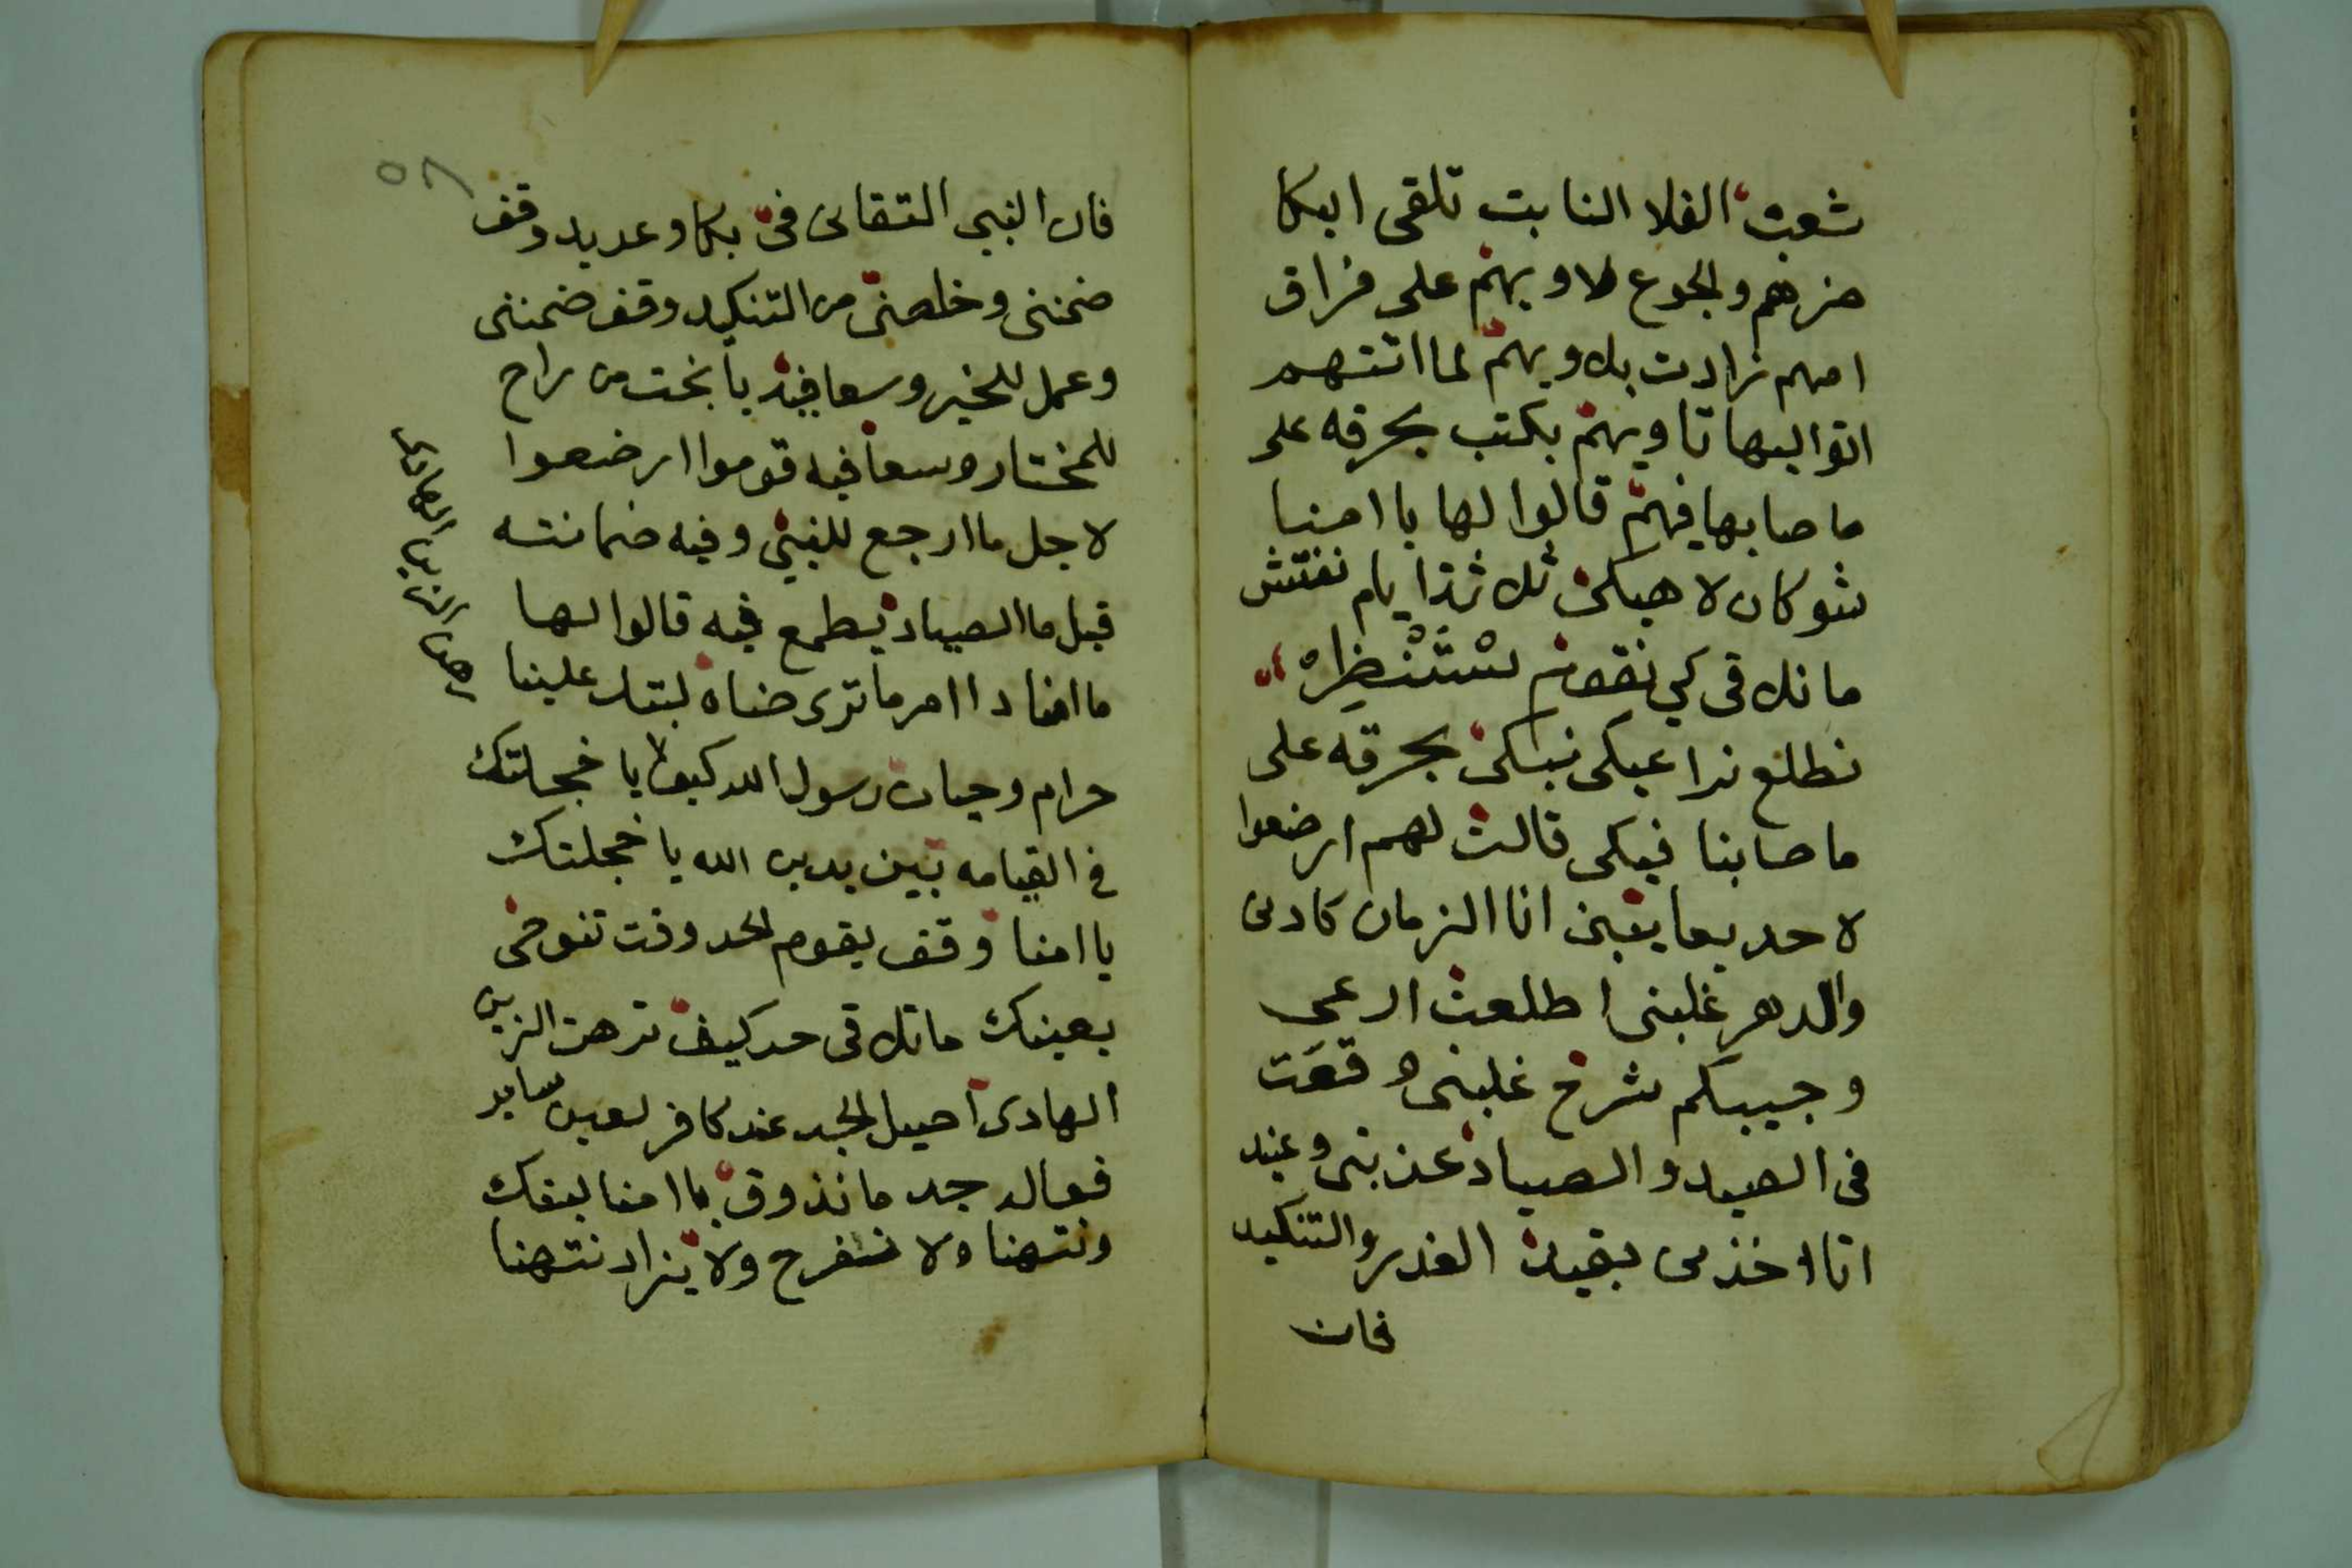 شعبت الفلا النابت تلقى البكا
حزهم والجوع لاويهم على فراق
امهم زادت بلاويهم لما اتتهم
اتوا اليها تاويهم بكت بحرقه على
ما صابها فيهم قالوا لها يا امنا
شو كان لا هيكى ثلاثة ايام نفتش
ما نلاقى كي نقوم نستنظره
نطلع نراعيكى نبكى بحرقه على
ما صابنا فيكى قالت لهم ارضعوا
لا حد بعا يقينى انا الزمان كادنى
والدهر غلبنى اطلعت ارعى
وجيبكم شرخ غلبنى وقعت
فى الصيد والصياد عذبنى وعيد
انا اخذنى بقيد الغدر والتنكيد
فان
٥٨
فان النبي التقانى فى بكا وعديد وقف
ضمننى وخلصنى من التنكيد وقف ضمننى
وعمل للخير وسعا فيه يا بخت من راح
للمختار وسعا فيه قوموا ارضعوا
لاجل ما ارجع للنبي وفيه ضمانته
قبل ما الصياد يطمع فيه قالوا لها
ما امنا دا امر ما نرضاه لبنك علينا
حرام وحياة رسول الله كيف لا يا خجلتك
في القيامه بين يدين الله يا خجلتك
يا امنا وقف يقوم الحد وقت تنوحى
بعينك ما تلاقى حد كيف ترهن الزين
الهادى اصيل الجد عند كافر لعين ساير
فعاله جد ما نذوق يا امنا لبنك
ونتهنا ولا نتفرح ولا يزاد نتهنا